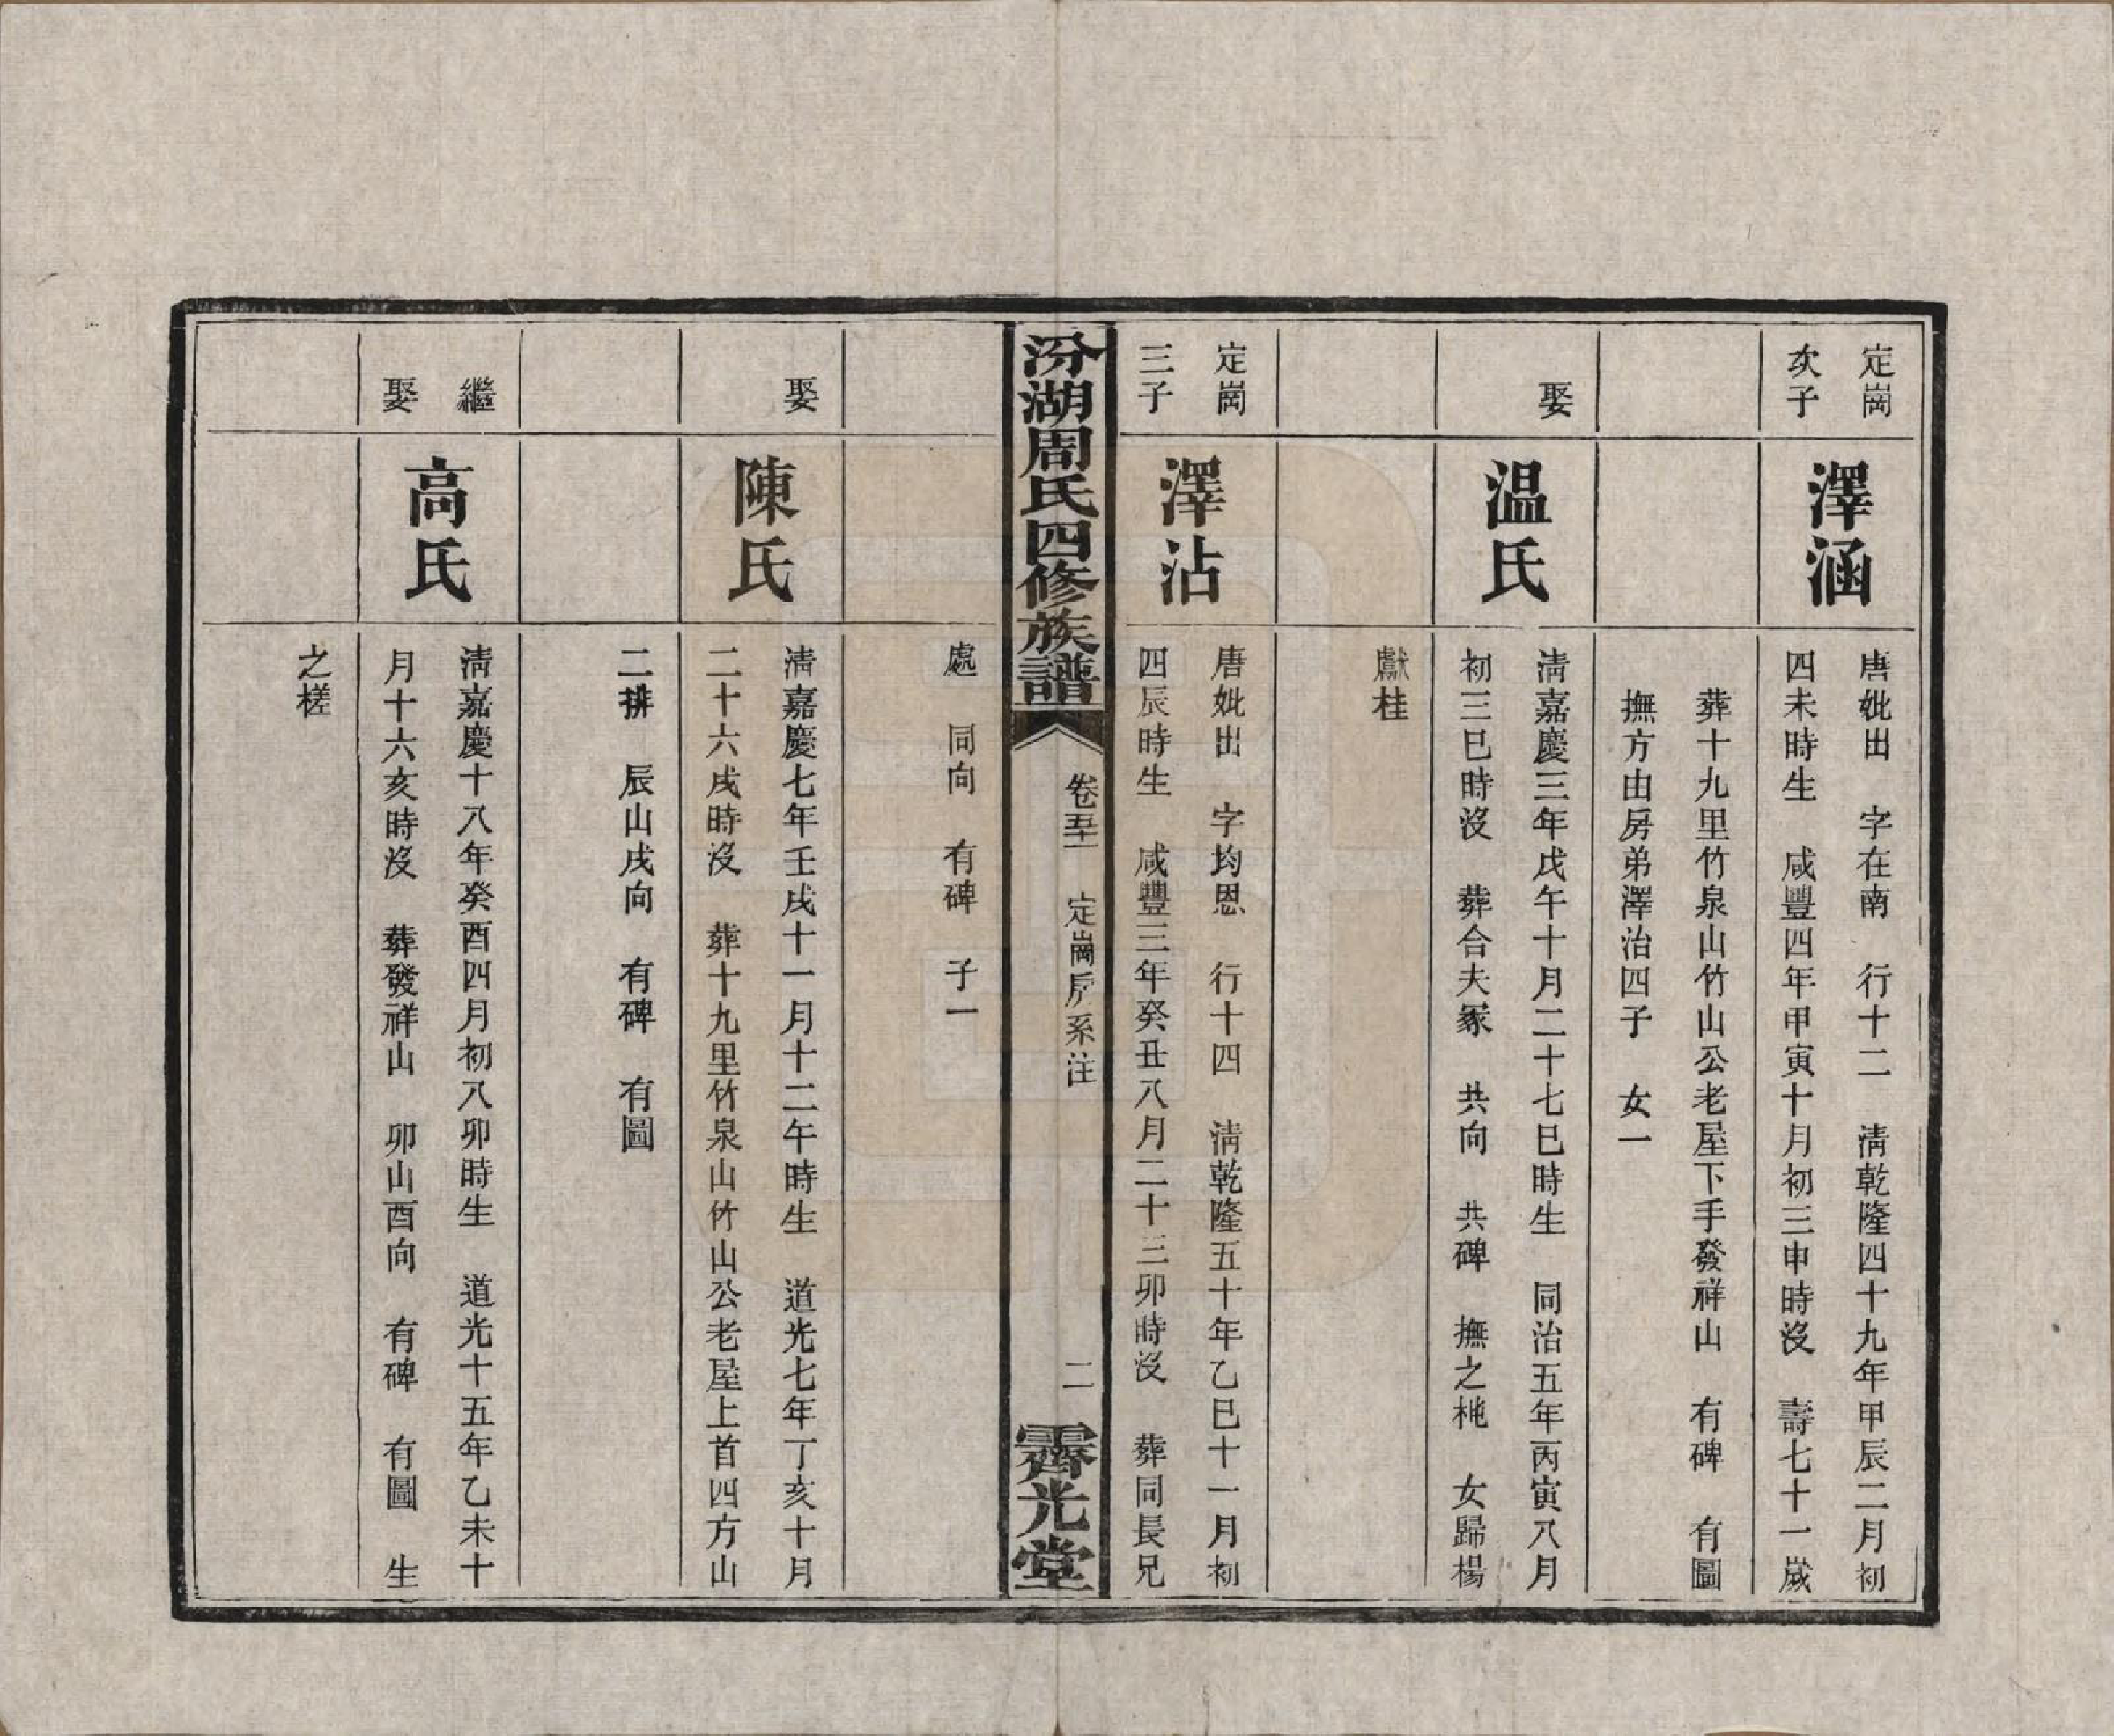 定崗
次子
澤涵
唐妣出　字在南　行十二　清乾隆四十九年甲辰二月初
四未時生　咸豐四年甲寅十月初三申時沒　壽七十一歲
葬十九里竹泉山竹山公老屋下手發祥山　有碑　有圖
撫方由房弟澤治四子　女一
娶
温氏
清嘉慶三年戊午十月二十七巳時生　同治五年丙寅八月
初三巳時沒　葬合夫冢　共向　共碑　撫之杶　女歸楊
獻桂
定崗
三子
澤沾
唐妣出　字均恩　行十四　清乾隆五十年乙巳十一月初
四辰時生　咸豐三年癸丑八月二十三卯時沒　葬同長兄
汾湖周氏四修族譜
卷五十一　定崗房系注
二
霽光堂
處　同向　有碑　子一
娶
陳氏
清嘉慶七年壬戌十一月十二午時生　道光七年丁亥十月
二十六戌時沒　葬十九里竹泉山竹山公老屋上首四方山
二排　辰山戌向　有碑　有圖
繼
娶
高氏
清嘉慶十八年癸酉四月初八卯時生　道光十五年乙未十
月十六亥時沒　葬發祥山　卯山酉向　有碑　有圖　生
之槎